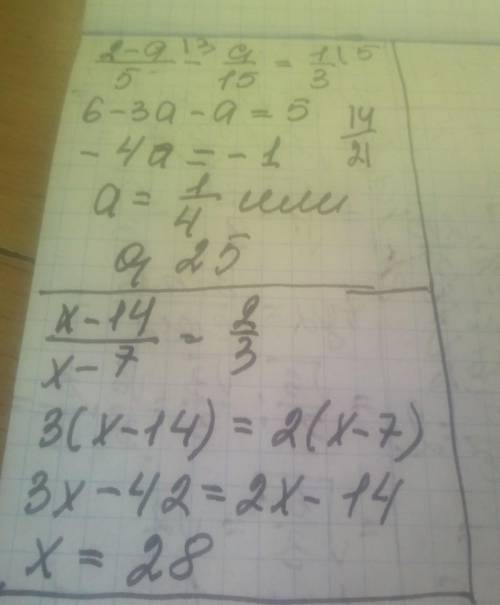 2-a/5 |3 - a/15 = 1/3 |5
6-3a-a=5
14/21
-4a=-1
a=1/4 или
0,25
x-14/x-7 = 2/3
3(x-14)=2(x-7)
3x-42=2x-14
x=28